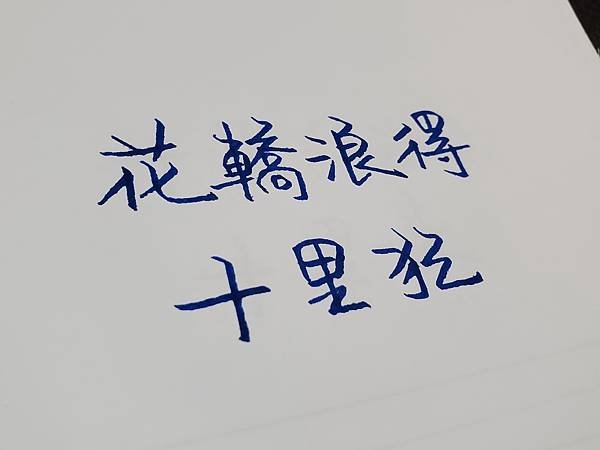 花轎浪得
十里狂